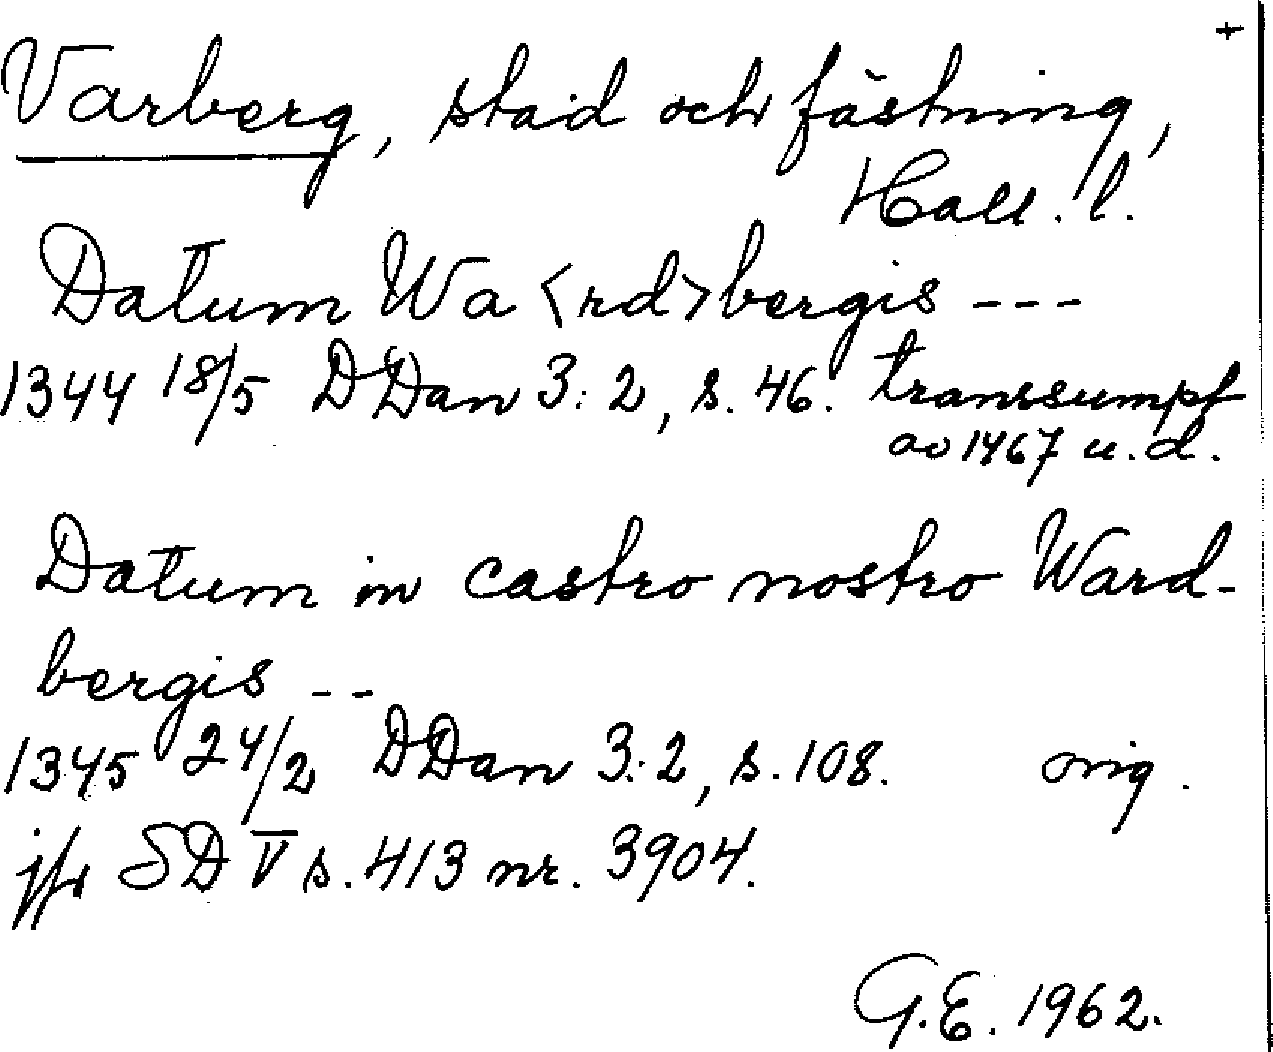 +
Varberg, stad och fästning,
Hall. l.
Datum Wa <rd>bergis ---
1344 18/5 DDan 3:2, s. 46. transsumpt
av 1467 u.d.
Datum in castro nostro Ward-
bergis --
1345 24/2 DDan 3:2, s. 108. orig.
jfr SD V s. 413 nr. 3904.
G.E. 1962.